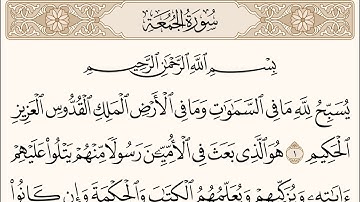 سُورَةُ الْجُمُعَةِ
بِسْمِ اللَّهِ الرَّحْمَٰنِ الرَّحِيمِ
يُسَبِّحُ لِلَّهِ مَا فِي السَّمَٰوَٰتِ وَمَا فِي الْأَرْضِ الْمَلِكِ الْقُدُّوسِ الْعَزِيزِ
الْحَكِيمِ ١ هُوَ الَّذِي بَعَثَ فِي الْأُمِّيِّـۧنَ رَسُولًا مِنْهُمْ يَتْلُوا عَلَيْهِمْ
ءَايَٰتِهِۦ وَيُزَكِّيهِمْ وَيُعَلِّمُهُمُ الْكِتَٰبَ وَالْحِكْمَةَ وَإِن كَانُوا